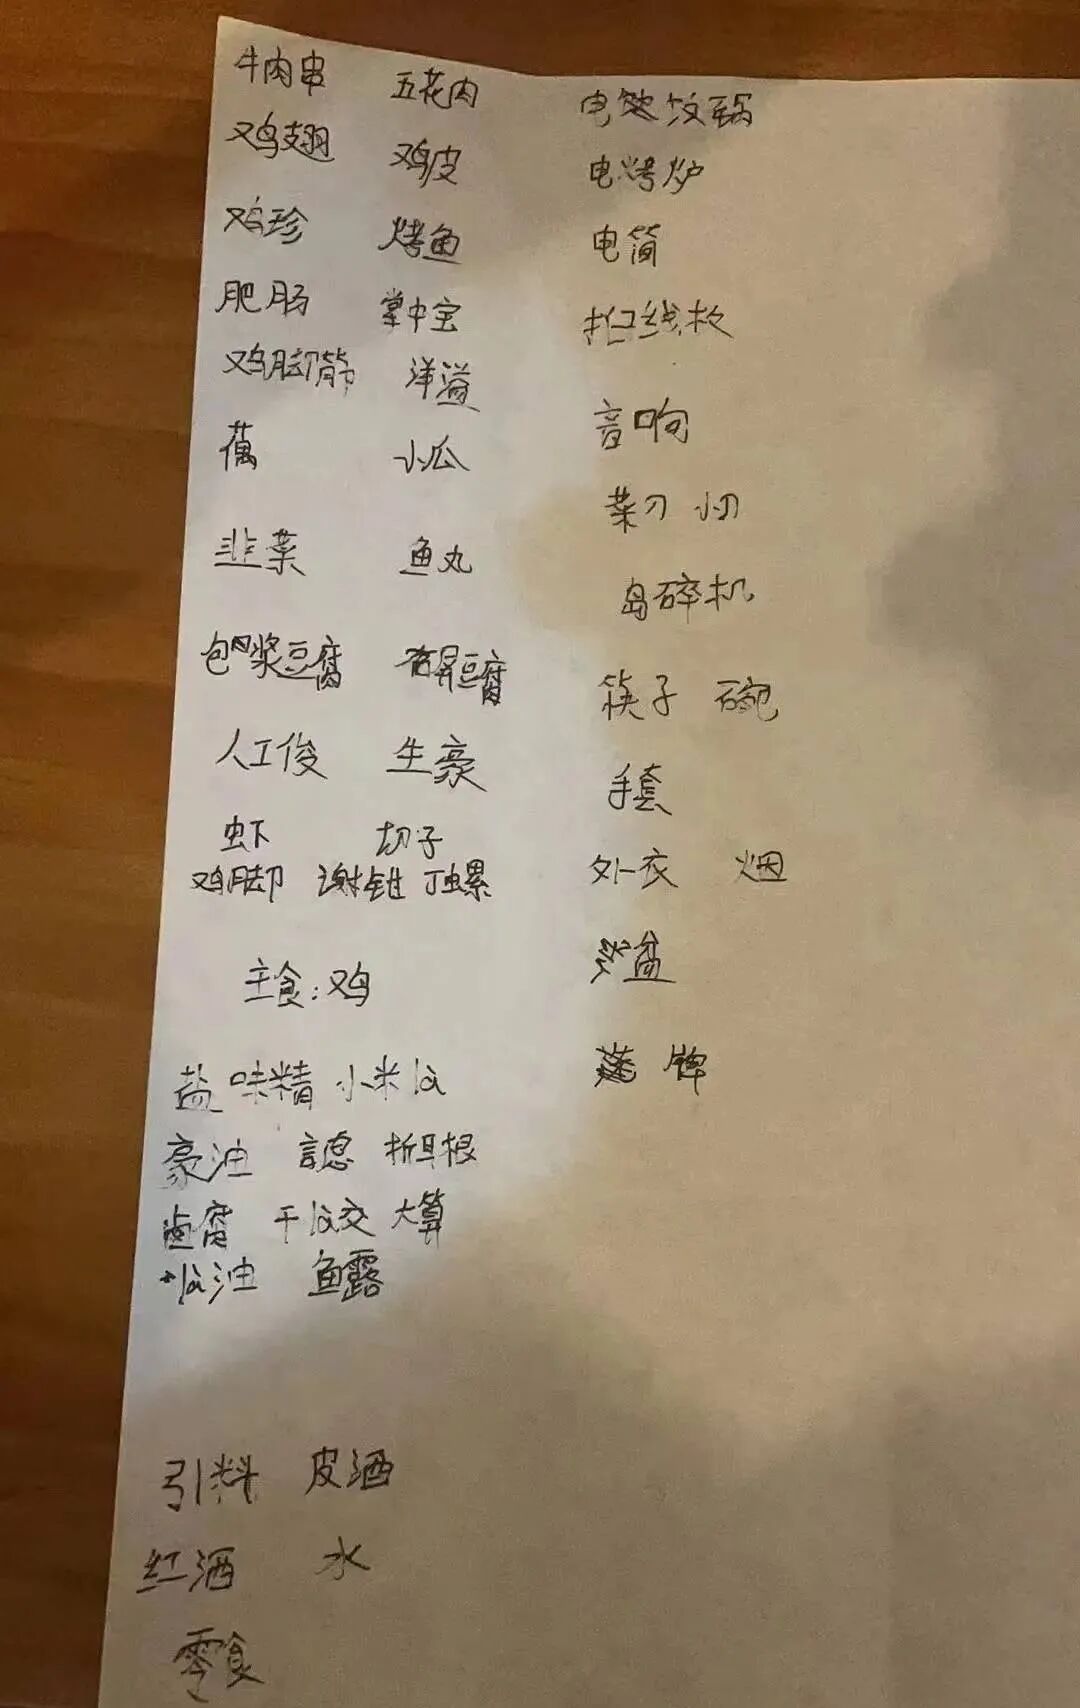 牛肉串 五花肉
鸡翅 鸡皮
鸡珍 烤鱼
肥肠 掌中宝
鸡脚筋 洋溢
小瓜
韭菜 鱼丸
包浆豆腐 豆腐
人工俊 生豪
虾 切子
鸡脚 谢钳 丁螺
主食:鸡
盐 味精 小米
豪油 折耳根
卤腐 干 大算
油 鱼露
引料 皮酒
红酒 水
零食
电 锅
电烤炉
电简
线板
音响
菜刀 小刀
岛碎机
筷子 碗
手套
外衣 烟
盆
牌